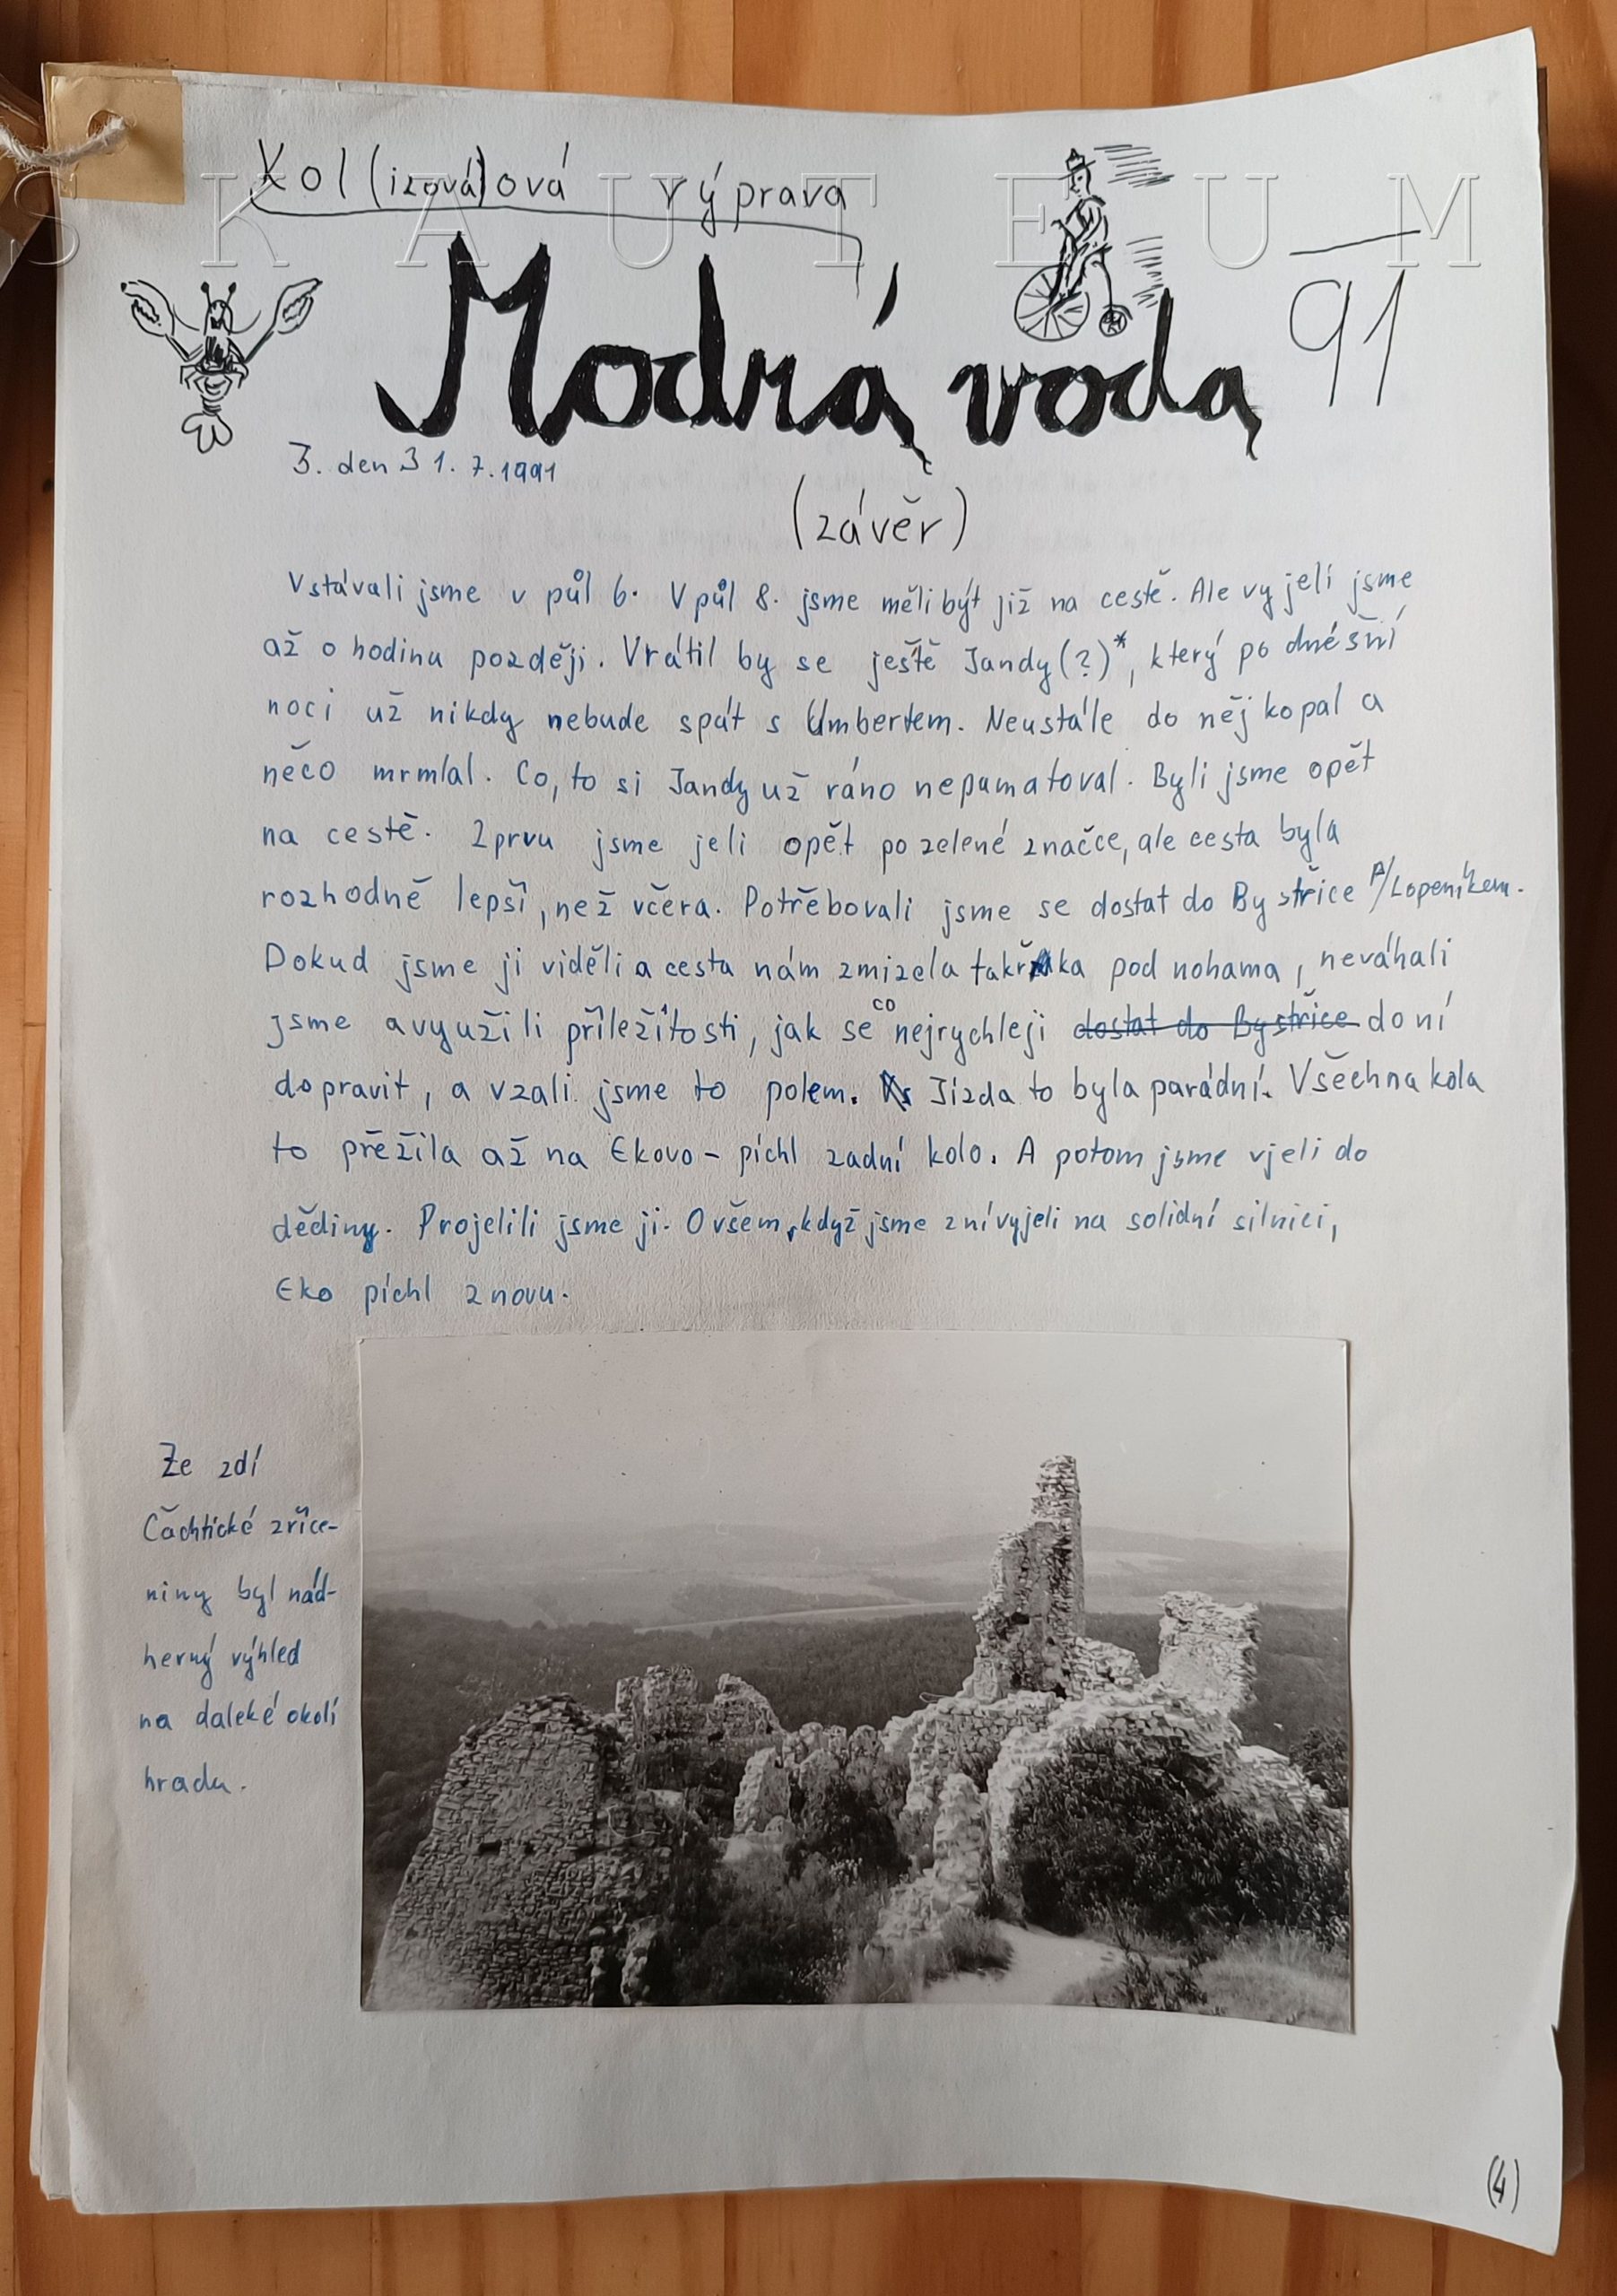 Kol(izová)ová výprava
SKAUTEUM
Modrá voda 91
3. den 31.7.1991
(závěr)
Vstávali jsme v půl 6. V půl 8. jsme měli být již na cestě. Ale vyjeli jsme
až o hodinu později. Vrátil by se ještě Jandy(?)*, který po dnéšní
noci už nikdy nebude spát s Umbertem. Neustále do něj kopal a
něco mrmlal. Co, to si Jandy už ráno nepamatoval. Byli jsme opět
na cestě. Zprvu jsme jeli opět po zelené značce, ale cesta byla
rozhodně lepší, než včera. Potřebovali jsme se dostat do Bystřice p/Lopeníkem.
Dokud jsme ji viděli a cesta nám zmizela takřka pod nohama, neváhali
jsme a využili příležitosti, jak se co nejrychleji dostat do Bystřice do ní
dopravit, a vzali jsme to polem. Jízda to byla parádní. Všechna kola
to přežila až na Ekovo - píchl zadní kolo. A potom jsme vjeli do
dědiny. Projelili jsme ji. Ovšem, když jsme z ní vyjeli na solidní silnici,
Eko píchl znovu.
Ze zdí
Čachtické zříce-
niny byl nád-
herný výhled
na daleké okolí
hradu.
(4)